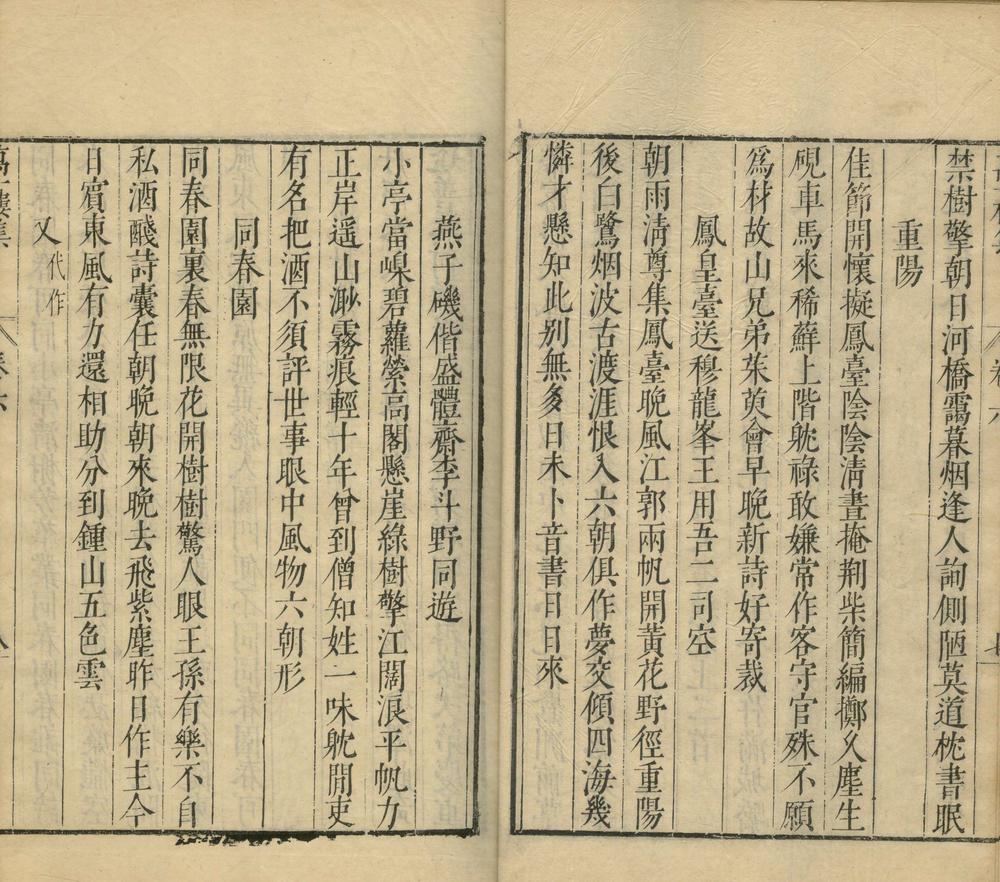 禁樹擎朝日河橋靄暮烟逢人詢側陋莫道枕書眠
重陽
佳節開懷擬鳳臺陰陰淸晝掩荆柴簡編擲久塵生
硯車馬來稀蘚上階躭祿敢嫌常作客守官殊不願
爲材故山兄弟茱萸會早晚新詩好寄裁
鳳皇臺送穆龍峯王用吾二司空
朝雨淸尊集鳳臺晚風江郭兩帆開黃花野徑重陽
後白鷺烟波古渡涯恨入六朝俱作夢交傾四海幾
憐才懸知此别無多日未卜音書日日來
燕子磯偕盛體齋李斗野同遊
小亭當𡾟碧蘿縈高閣懸崖綠樹擎江闊浪平帆力
正岸遥山渺霧痕輕十年曾到僧知姓一味躭閒吏
有名把酒不須評世事眼中風物六朝形
同春園
同春園裏春無限花開樹樹驚人眼王孫有樂不自
私酒醆詩囊任朝晚朝來晚去飛紫塵昨日作主今
日賔東風有力還相助分到鍾山五色雲
又代作
萬一樓集 卷六 八